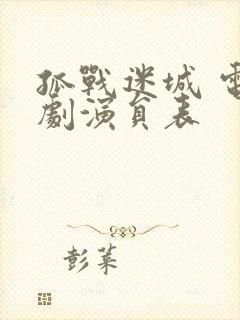 孤戰迷城 電
劇演員表
彭萊